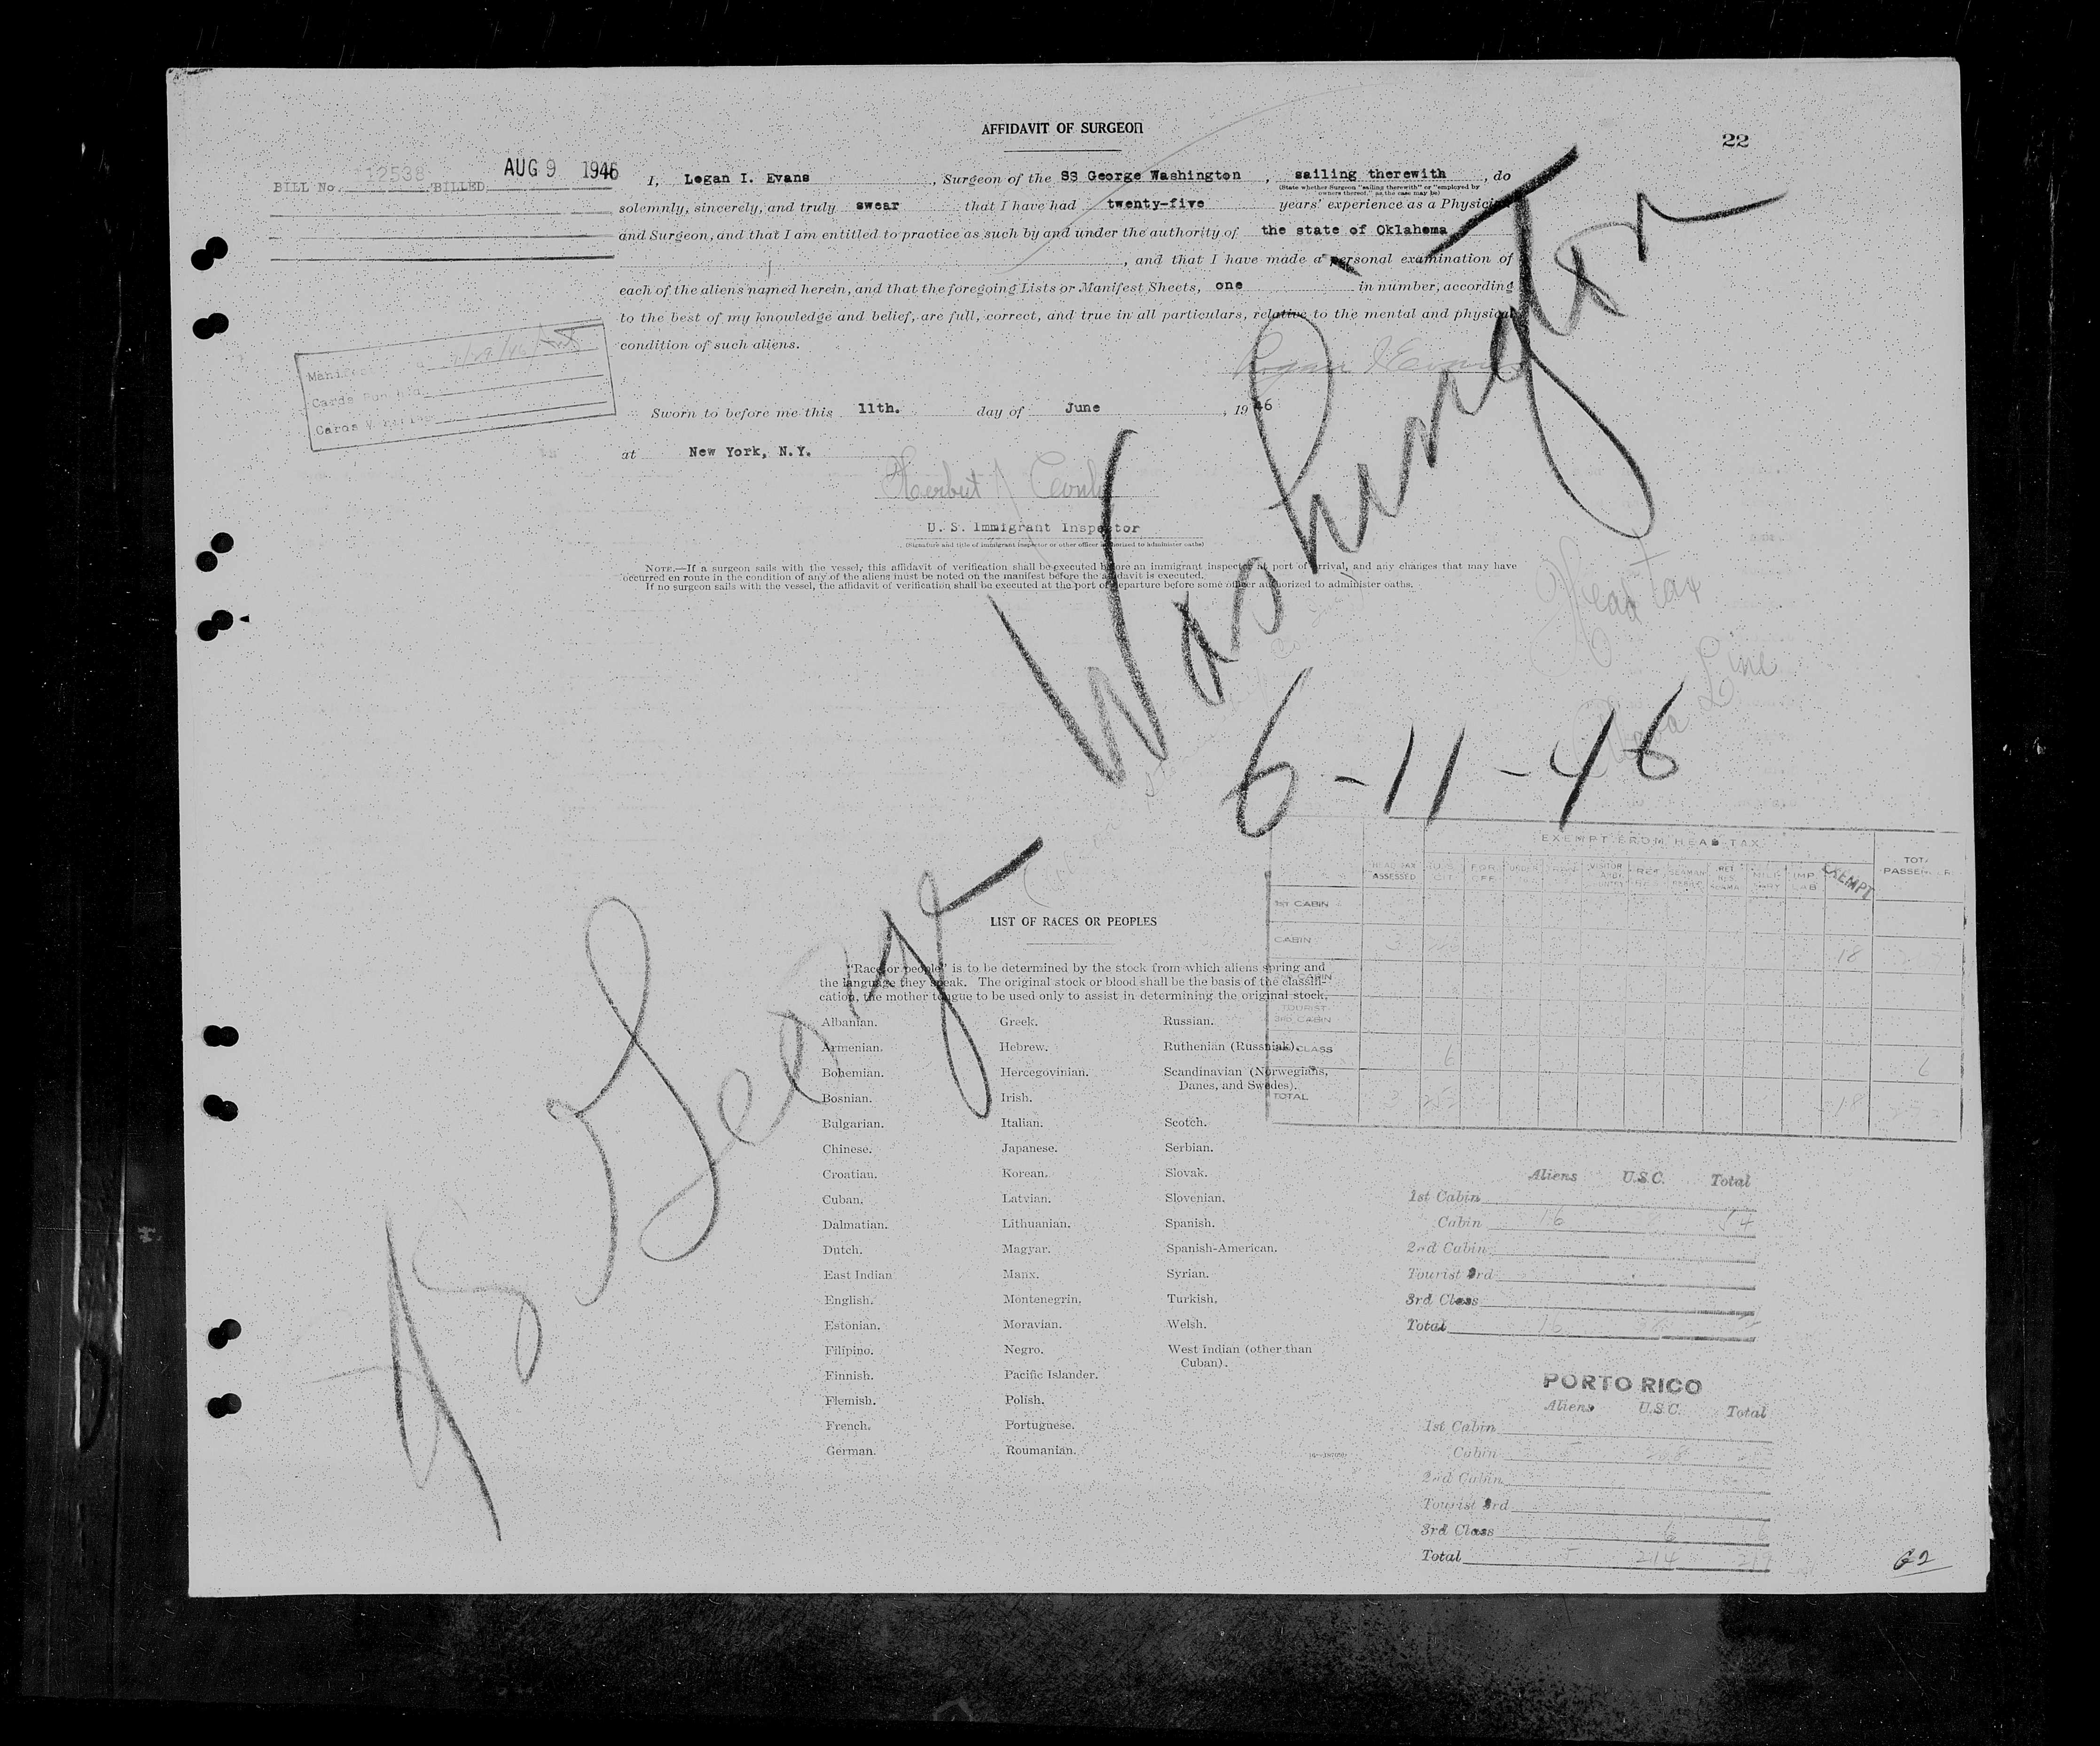 AFFIDAVIT OF SURGEON
22
BILL No. 12538 BILLED AUG 9 1946
I, Logan I. Evans, Surgeon of the SS George Washington, sailing therewith, do
(State whether Surgeon "sailing therewith" or "employed by owners thereof," as the case may be)
solemnly, sincerely, and truly swear that I have had twenty-five years' experience as a Physician
and Surgeon, and that I am entitled to practice as such by and under the authority of the state of Oklahoma
, and that I have made a personal examination of
each of the aliens named herein, and that the foregoing Lists or Manifest Sheets, one in number, according
to the best of my knowledge and belief, are full, correct, and true in all particulars, relative to the mental and physical
condition of such aliens.
Logan I Evans
Sworn to before me this 11th. day of June, 1946
at New York, N.Y.
Herbert
U. S. Immigrant Inspector
(Signature and title of immigrant inspector or other officer authorized to administer oaths)
NOTE.—If a surgeon sails with the vessel, this affidavit of verification shall be executed before an immigrant inspector at port of arrival, and any changes that may have
occurred en route in the condition of any of the aliens must be noted on the manifest before the affidavit is executed.
If no surgeon sails with the vessel, the affidavit of verification shall be executed at the port of departure before some officer authorized to administer oaths.
SS George Washington
6-11-46
Head tax
Line
EXEMPT FROM HEAD TAX
HEAD TAX ASSESSED
FOR OFF
EXEMPT
1ST CABIN
CABIN 3 18
TOURIST 3RD CABIN
3RD CLASS 6 6
TOTAL 3 18
LIST OF RACES OR PEOPLES
"Race or people" is to be determined by the stock from which aliens spring and
the language they speak. The original stock or blood shall be the basis of the classifi-
cation, the mother tongue to be used only to assist in determining the original stock.
Albanian. Greek. Russian.
Armenian. Hebrew. Ruthenian (Russniak).
Bohemian. Hercegovinian. Scandinavian (Norwegians, Danes, and Swedes).
Bosnian. Irish.
Bulgarian. Italian. Scotch.
Chinese. Japanese. Serbian.
Croatian. Korean. Slovak.
Cuban. Latvian. Slovenian.
Dalmatian. Lithuanian. Spanish.
Dutch. Magyar. Spanish-American.
East Indian Manx. Syrian.
English. Montenegrin. Turkish.
Estonian. Moravian. Welsh.
Filipino. Negro. West Indian (other than Cuban).
Finnish. Pacific Islander.
Flemish. Polish.
French. Portuguese.
German. Roumanian.
Aliens U.S.C. Total
1st Cabin
Cabin 16 54
2nd Cabin
Tourist 3rd
3rd Class
Total 16
PORTO RICO
Aliens U.S.C. Total
1st Cabin
Cabin
2nd Cabin
Tourist 3rd
3rd Class 6 6
Total 5 214 219
62